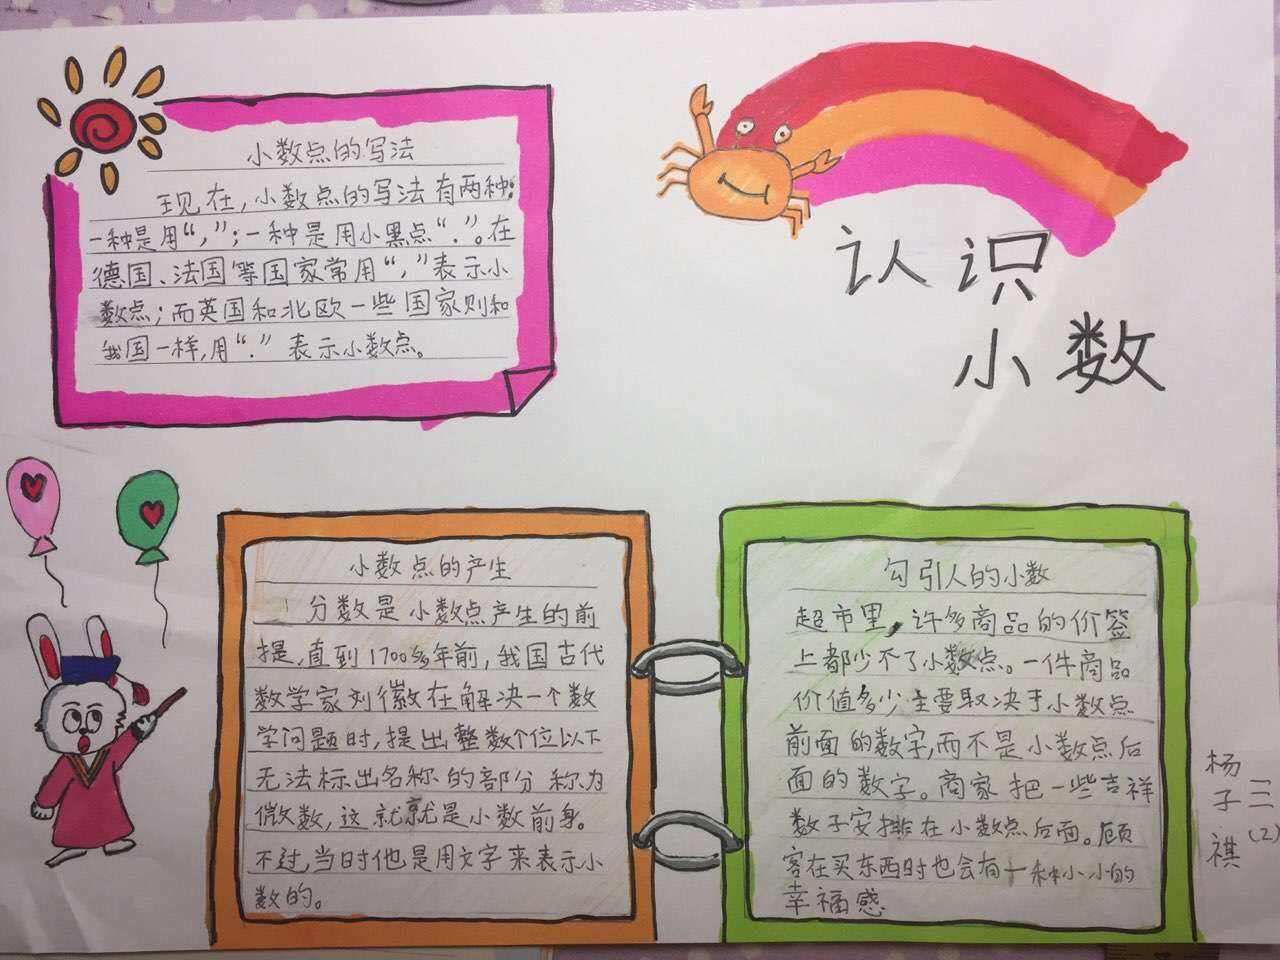 小数点的写法
现在,小数点的写法有两种:
一种是用“,”;一种是用小黑点“.”。在
德国、法国等国家常用“,”表示小
数点;而英国和北欧一些国家则和
我国一样,用“.”表示小数点。
认识
小数
小数点的产生
分数是小数点产生的前
提,直到1700多年前,我国古代
数学家刘徽在解决一个数
学问题时,提出整数个位以下
无法标出名称的部分称为
微数,这就就是小数前身。
不过,当时他是用文字来表示小
数的。
勾引人的小数
超市里,许多商品的价签
上都少不了小数点。一件商品
价值多少主要取决于小数点
前面的数字,而不是小数点后
面的数字。商家把一些吉祥
数子安排在小数点后面。顾
客在买东西时也会有一种小小的
幸福感
三(2)
杨子祺